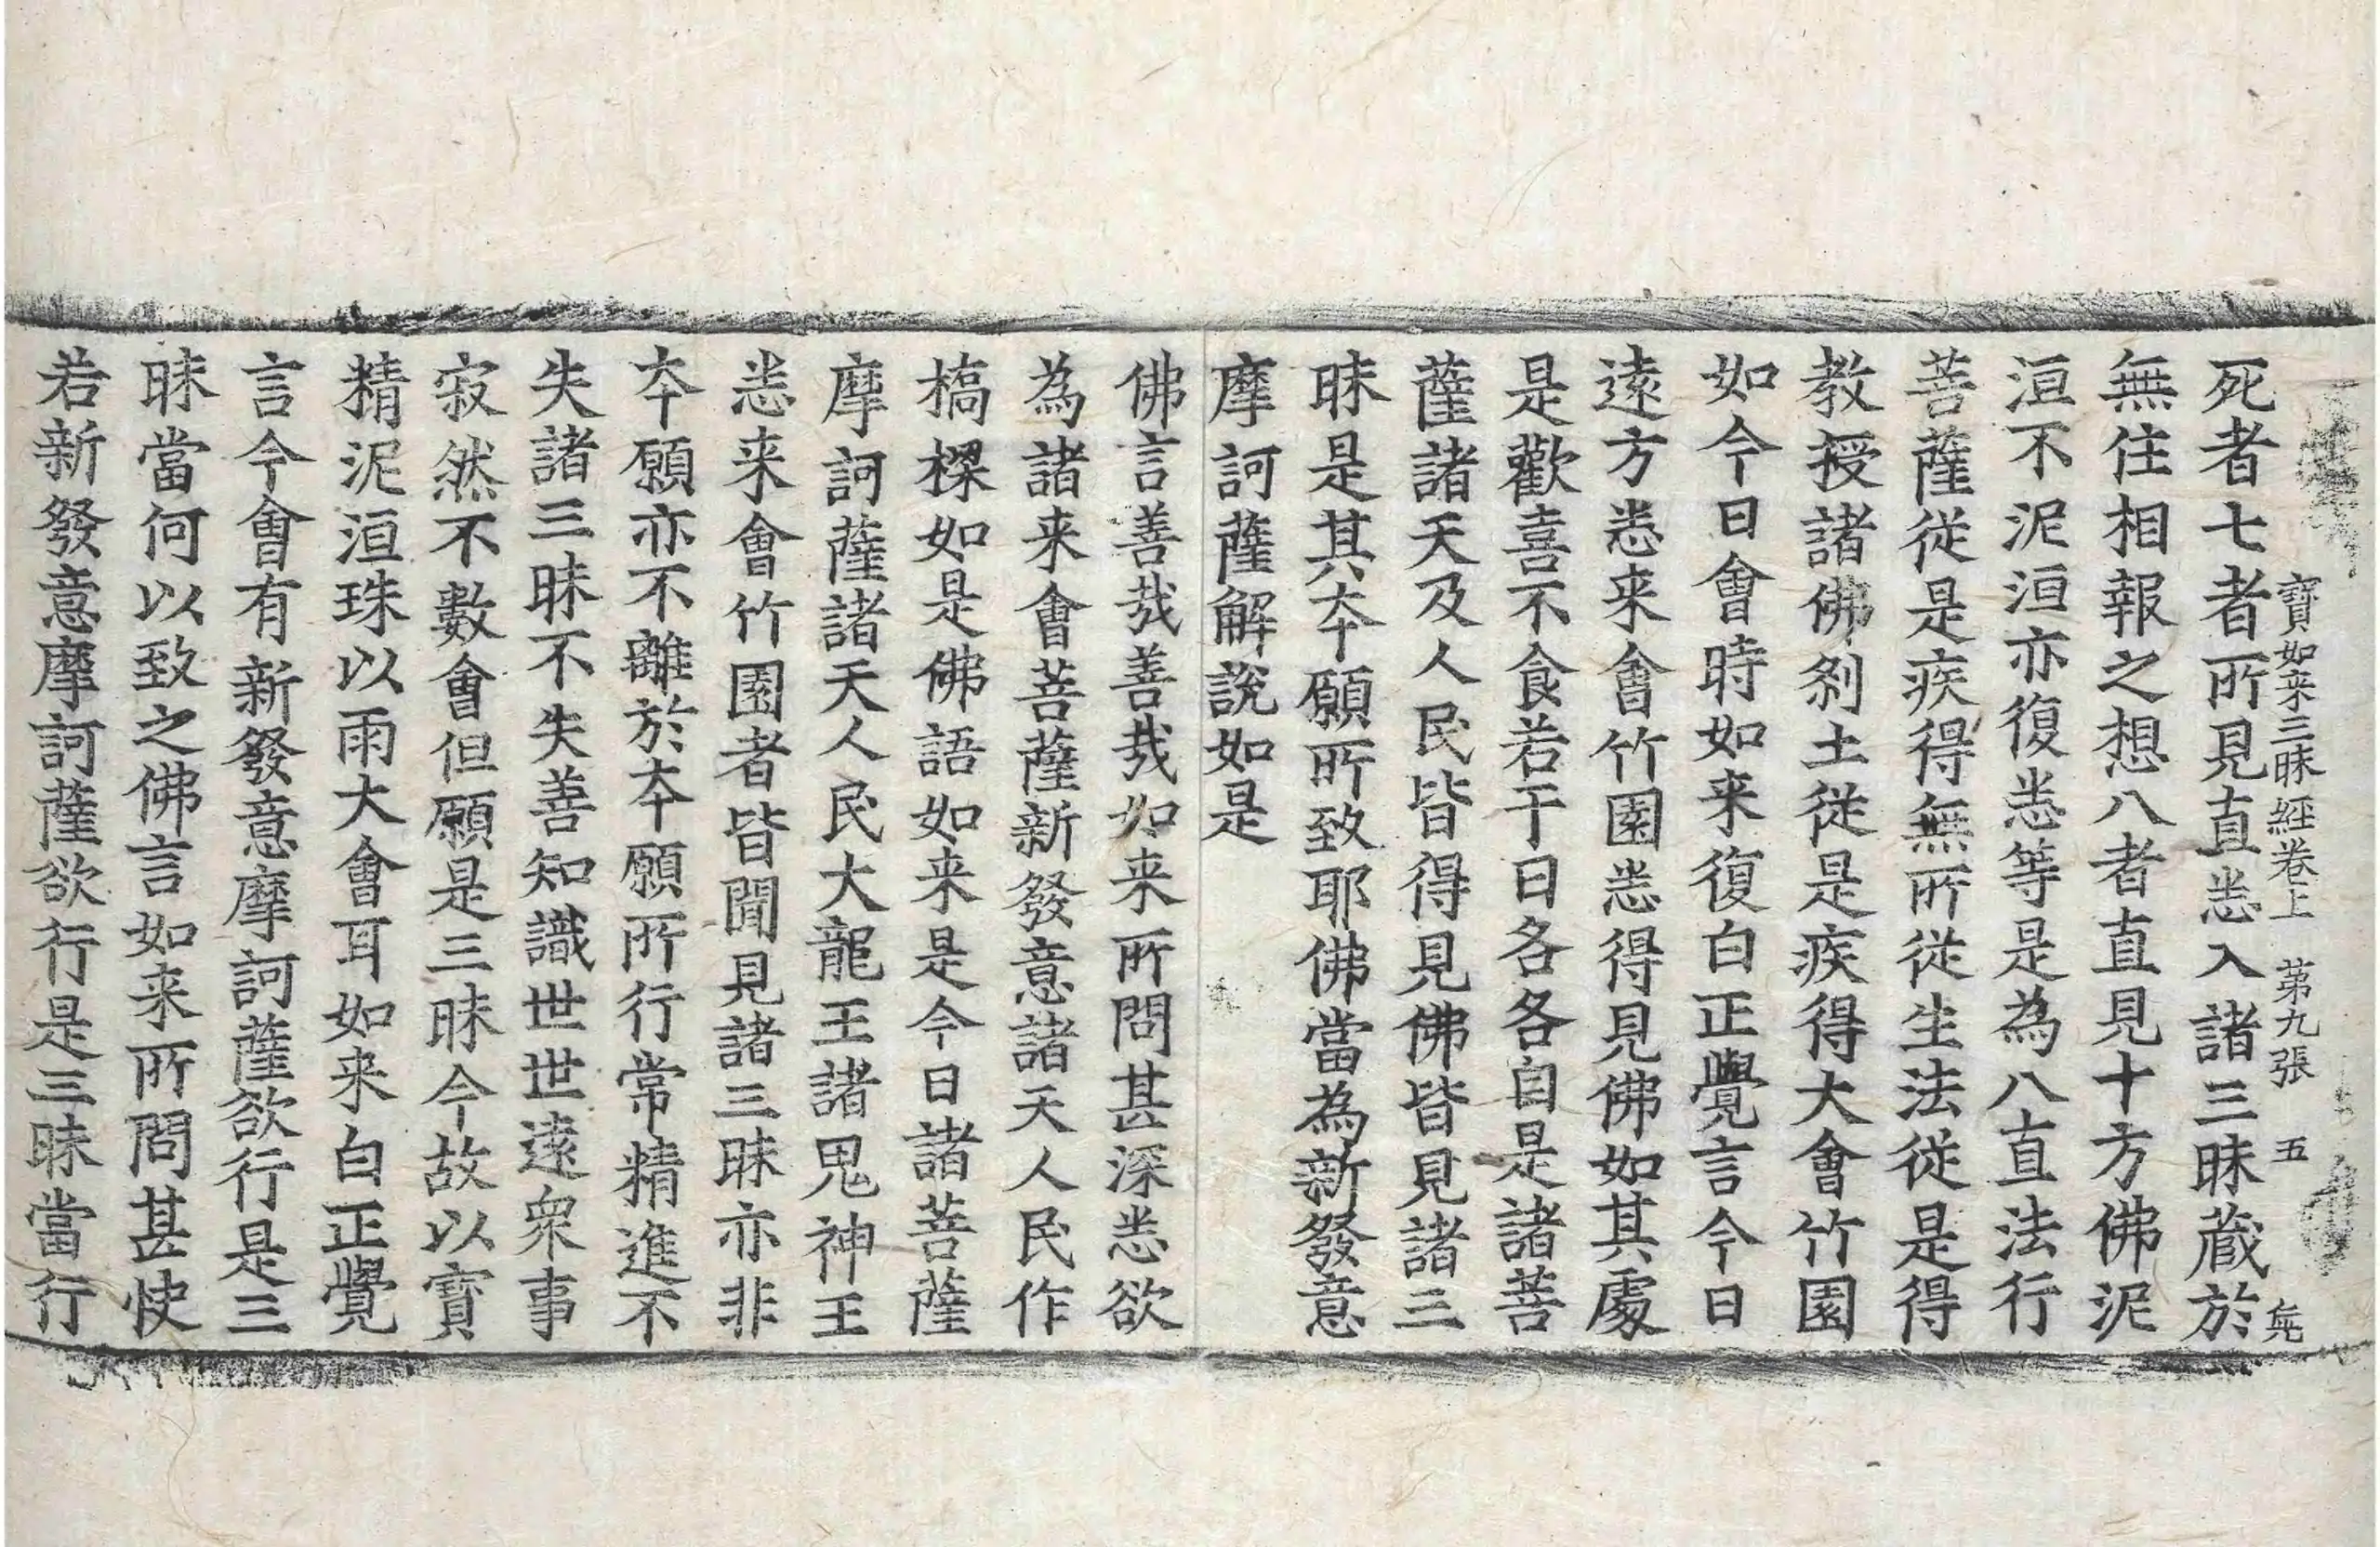 寶如来三昧經卷上 第九張 五 㡯
死者七者所見直悉入諸三昧蔵於
無住相報之想八者直見十方佛泥
洹不泥洹亦復悉等是為八直法行
菩薩從是疾得無所從生法從是得
教授諸佛刹土從是疾得大會竹園
如今日會時如来復白正覺言今日
遠方悉来會竹園悉得見佛如其處
是歡喜不食若干日各各自是諸菩
薩諸天及人民皆得見佛皆見諸三
昧是其夲願所致耶佛當為新發意
摩訶薩解說如是
佛言善㢤善㢤如来所問甚深悉欲
為諸来會菩薩新發意諸天人民作
橋樑如是佛語如来是今日諸菩薩
摩訶薩諸天人民大龍王諸鬼神王
悉来會竹園者皆聞見諸三昧亦非
夲願亦不離於夲願所行常精進不
失諸三昧不失善知識世世遠衆事
寂然不數會但願是三昧今故以寶
精泥洹珠以雨大會耳如来白正覺
言今會有新發意摩訶薩欲行是三
昧當何以致之佛言如来所問甚快
若新發意摩訶薩欲行是三昧當行